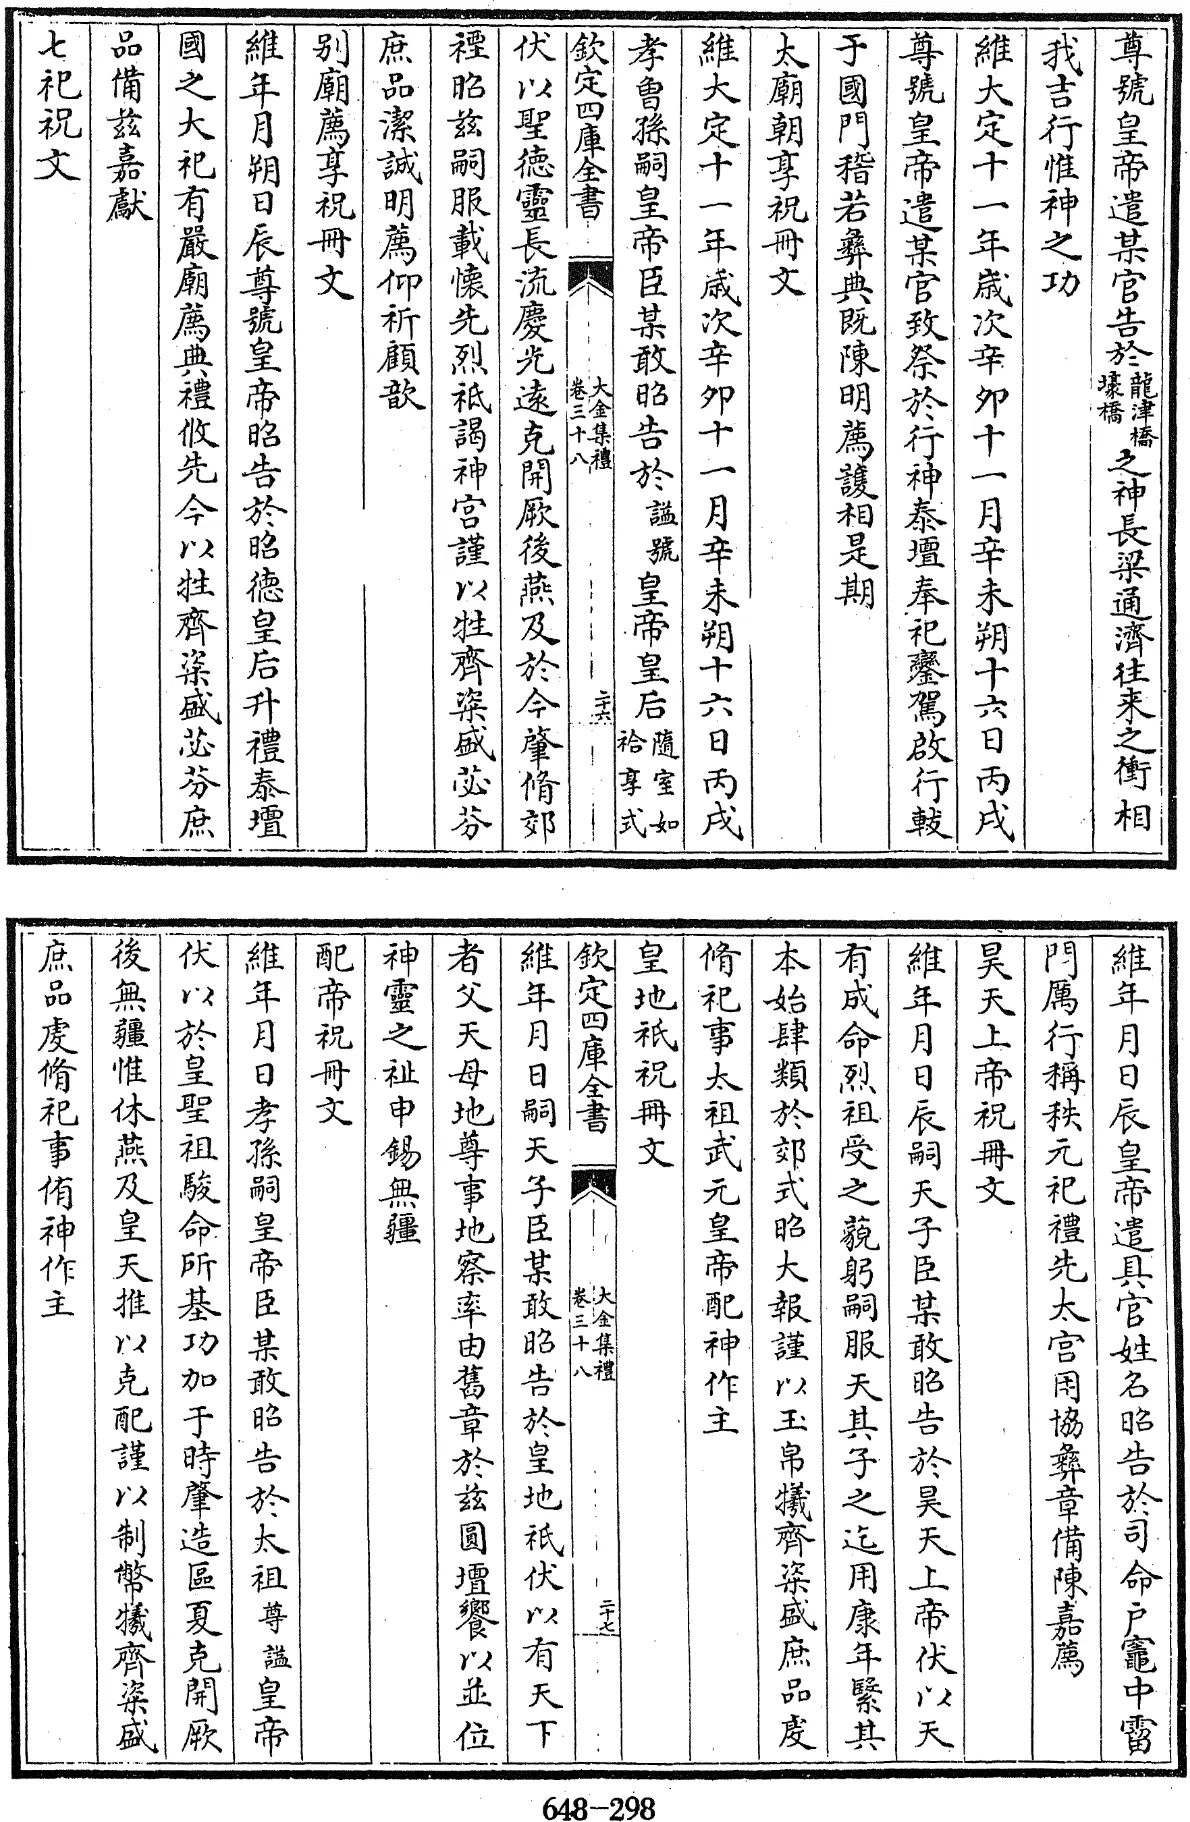 尊號皇帝遣某官告於龍津橋壕橋之神長梁通濟往来之衝相
我吉行惟神之功
維大定十一年歳次辛卯十一月辛未朔十六日丙戌
尊號皇帝遣某官致祭於行神泰壇奉祀鑾駕啟行軷
于國門稽若彝典既陳明薦護相是期
太廟朝享祝冊文
維大定十一年歳次辛卯十一月辛未朔十六日丙戌
孝曾孫嗣皇帝臣某敢昭告於諡號皇帝皇后隨室如祫享式
欽定四庫全書
大金集禮
卷三十八
二十六
伏以聖德靈長流慶光遠克開厥後燕及於今肇脩郊
禋昭兹嗣服載懐先烈祗謁神宫謹以牲齊粢盛苾芬
庶品潔誠明薦仰祈顧歆
别廟薦享祝冊文
維年月朔日辰尊號皇帝昭告於昭德皇后升禮泰壇
國之大祀有嚴廟薦典禮攸先今以牲齊粢盛苾芬庶
品備兹嘉獻
七祀祝文
維年月日辰皇帝遣具官姓名昭告於司命户竈中霤
門厲行稱秩元祀禮先太宫用協彝章備陳嘉薦
昊天上帝祝冊文
維年月日辰嗣天子臣某敢昭告於昊天上帝伏以天
有成命烈祖受之藐躬嗣服天其子之迄用康年緊其
本始肆類於郊式昭大報謹以玉帛犧齊粢盛庶品䖍
脩祀事太祖武元皇帝配神作主
皇地祇祝冊文
欽定四庫全書
大金集禮
卷三十八
二十七
維年月日嗣天子臣某敢昭告於皇地祇伏以有天下
者父天母地尊事地察率由舊章於兹圓壇饗以並位
神靈之祉申錫無疆
配帝祝冊文
維年月日孝孫嗣皇帝臣某敢昭告於太祖尊諡皇帝
伏以於皇聖祖駿命所基功加于時肇造區夏克開厥
後無疆惟休燕及皇天推以克配謹以制幣犧齊粢盛
庶品䖍脩祀事侑神作主
648-298